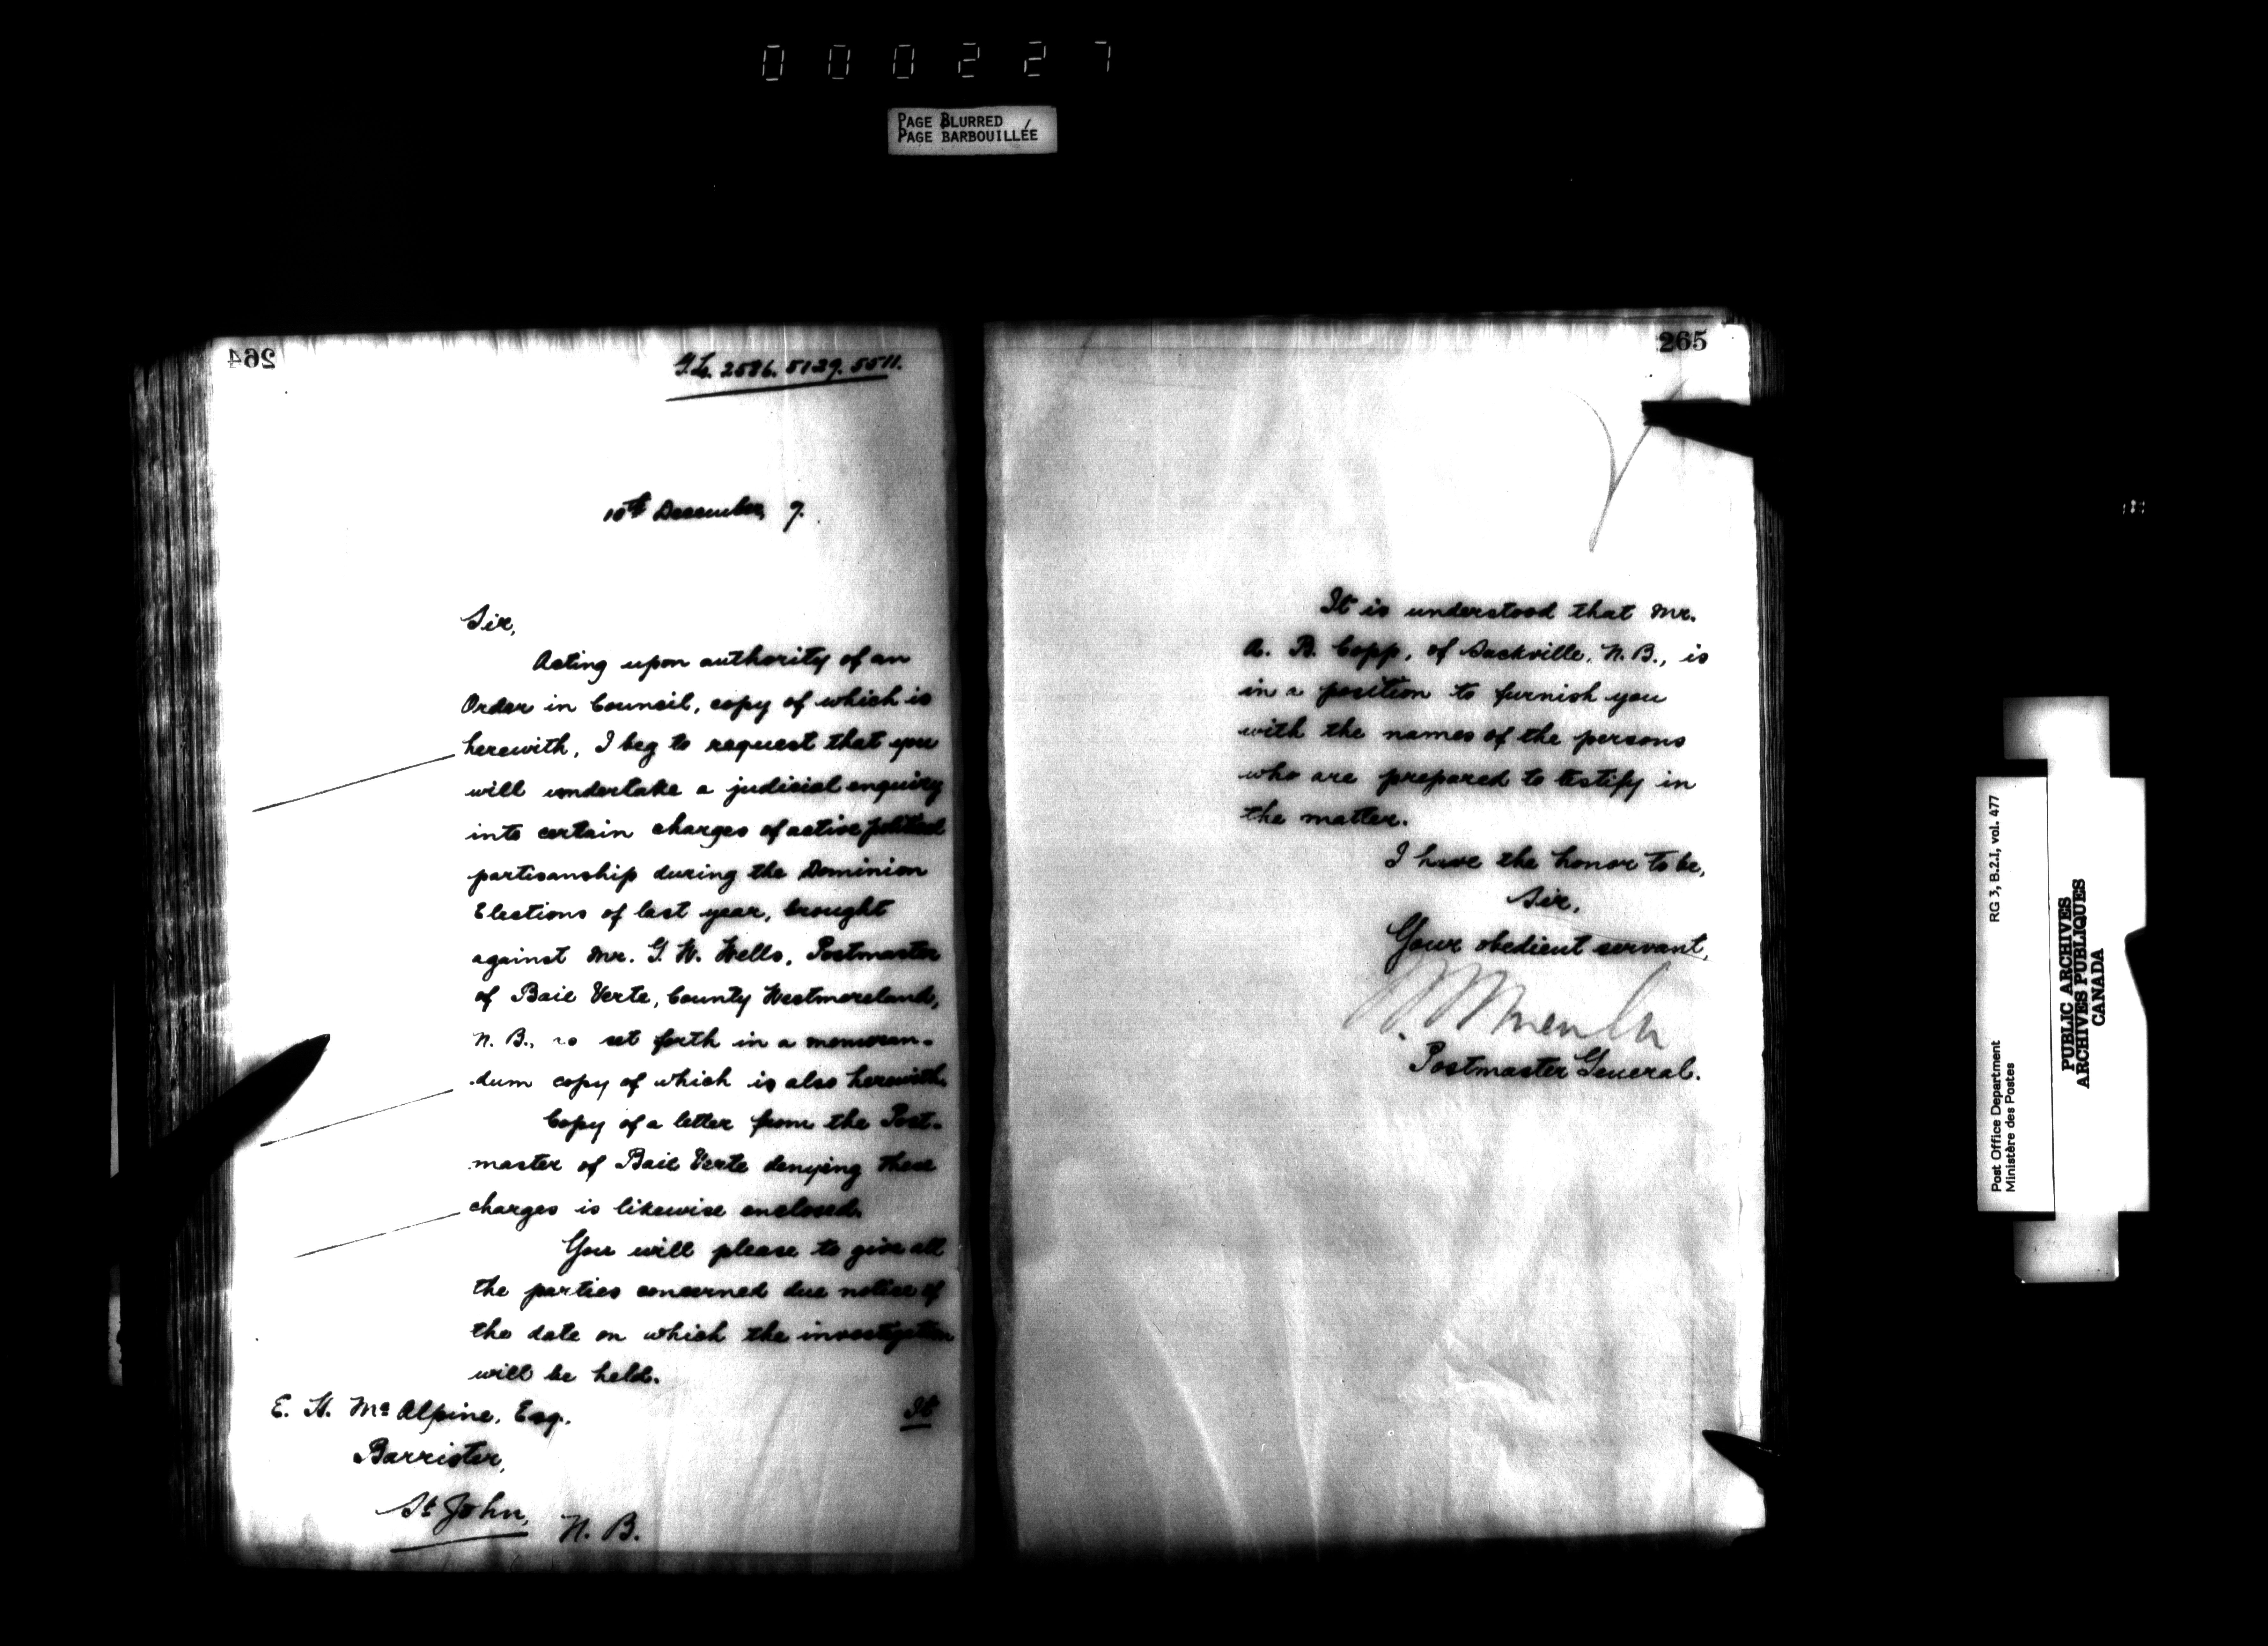 000227
PAGE BLURRED
PAGE BARBOUILLÉE
264
2586. 5129. 5511.
10th December, 7.
Sir,
Acting upon authority of an
Order in Council, copy of which is
herewith, I beg to request that you
will undertake a judicial enquiry
into certain charges of active political
partisanship during the Dominion
Elections of last year, brought
against Mr. G. W. Wells, Postmaster
of Baie Verte, County Westmoreland,
N. B., as set forth in a memoran-
dum copy of which is also herewith.
Copy of a letter from the Post-
master of Baie Verte denying these
charges is likewise enclosed.
You will please to give all
the parties concerned due notice of
the date on which the investigation
will be held.
It
E. H. McAlpine, Esq.
Barrister,
St John, N. B.
265
It is understood that Mr.
A. B. Copp, of Sackville, N. B., is
in a position to furnish you
with the names of the persons
who are prepared to testify in
the matter.
I have the honor to be,
Sir,
Your obedient servant,
Postmaster General.
Post Office Department
Ministère des Postes
RG 3, B.2.I, vol. 477
PUBLIC ARCHIVES
ARCHIVES PUBLIQUES
CANADA